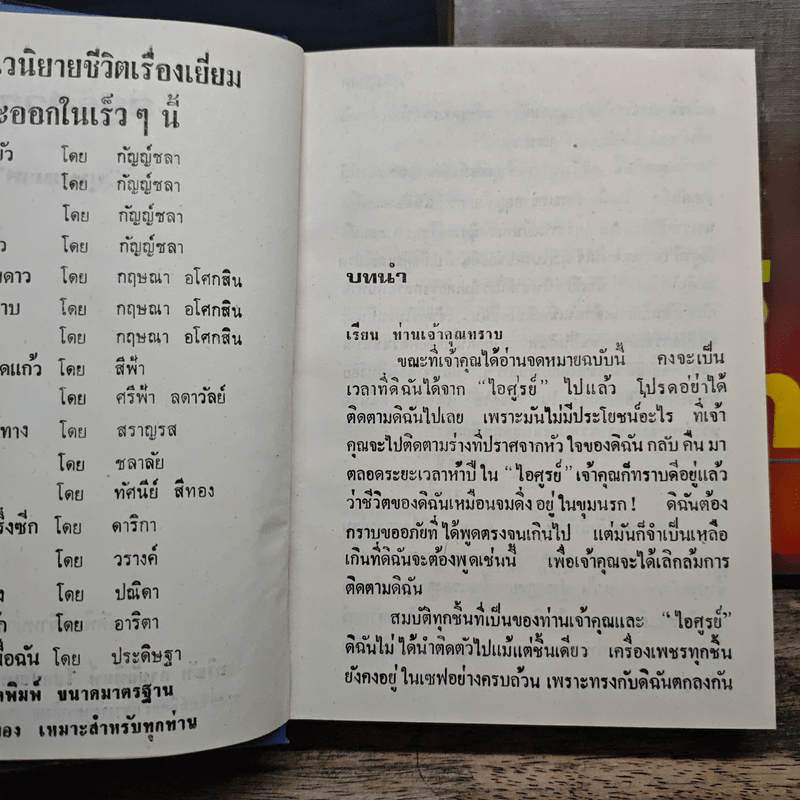 วนิยายชีวิตเรื่องเยี่ยม
ะออกในเร็ว ๆ นี้
บัว โดย กัญญ์ชลา
โดย กัญญ์ชลา
โดย กัญญ์ชลา
ว โดย กัญญ์ชลา
ดาว โดย กฤษณา อโศกสิน
าบ โดย กฤษณา อโศกสิน
โดย กฤษณา อโศกสิน
ดแก้ว โดย สีฟ้า
โดย ศรีฟ้า ลดาวัลย์
ทาง โดย สราญรส
โดย ชลาลัย
โดย ทัศนีย์ สีทอง
ร็งซีก โดย ดาริกา
โดย วรางค์
ง โดย ปณิตา
ก โดย อาริตา
อฉัน โดย ประดิษฐา
พิมพ์ ขนาดมาตรฐาน
ของ เหมาะสำหรับทุกท่าน
บทนำ
เรียน ท่านเจ้าคุณทราบ
ขณะที่เจ้าคุณได้อ่านจดหมายฉบับนี้ คงจะเป็น
เวลาที่ดิฉันได้จาก “ไอศูรย์” ไปแล้ว โปรดอย่าได้
ติดตามดิฉันไปเลย เพราะมันไม่มีประโยชน์อะไร ที่เจ้า
คุณจะไปติดตามร่างที่ปราศจากหัว ใจของดิฉัน กลับ คืน มา
ตลอดระยะเวลาห้าปี ใน “ไอศูรย์” เจ้าคุณก็ทราบดีอยู่แล้ว
ว่าชีวิตของดิฉันเหมือนจมดิ่ง อยู่ ในขุมนรก ! ดิฉันต้อง
กราบขออภัยที่ ได้พูดตรงจนเกินไป แต่มันก็จำเป็นเหลือ
เกินที่ดิฉันจะต้องพูดเช่นนี้ เพื่อเจ้าคุณจะได้เลิกล้มการ
ติดตามดิฉัน
สมบัติทุกชิ้นที่เป็นของท่านเจ้าคุณและ “ไอศูรย์”
ดิฉันไม่ ได้นำติดตัวไปแม้แต่ชิ้นเดียว เครื่องเพชรทุกชิ้น
ยังคงอยู่ ในเซฟอย่างครบถ้วน เพราะทรงกับดิฉันตกลงกัน